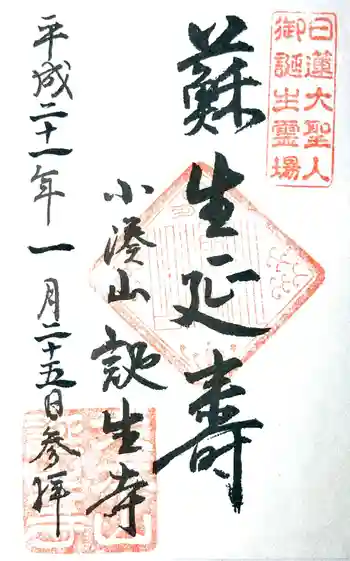 日蓮大聖人
御誕生霊場
蘇生延壽
小湊山誕生寺
平成二十一年一月二十五日参拝